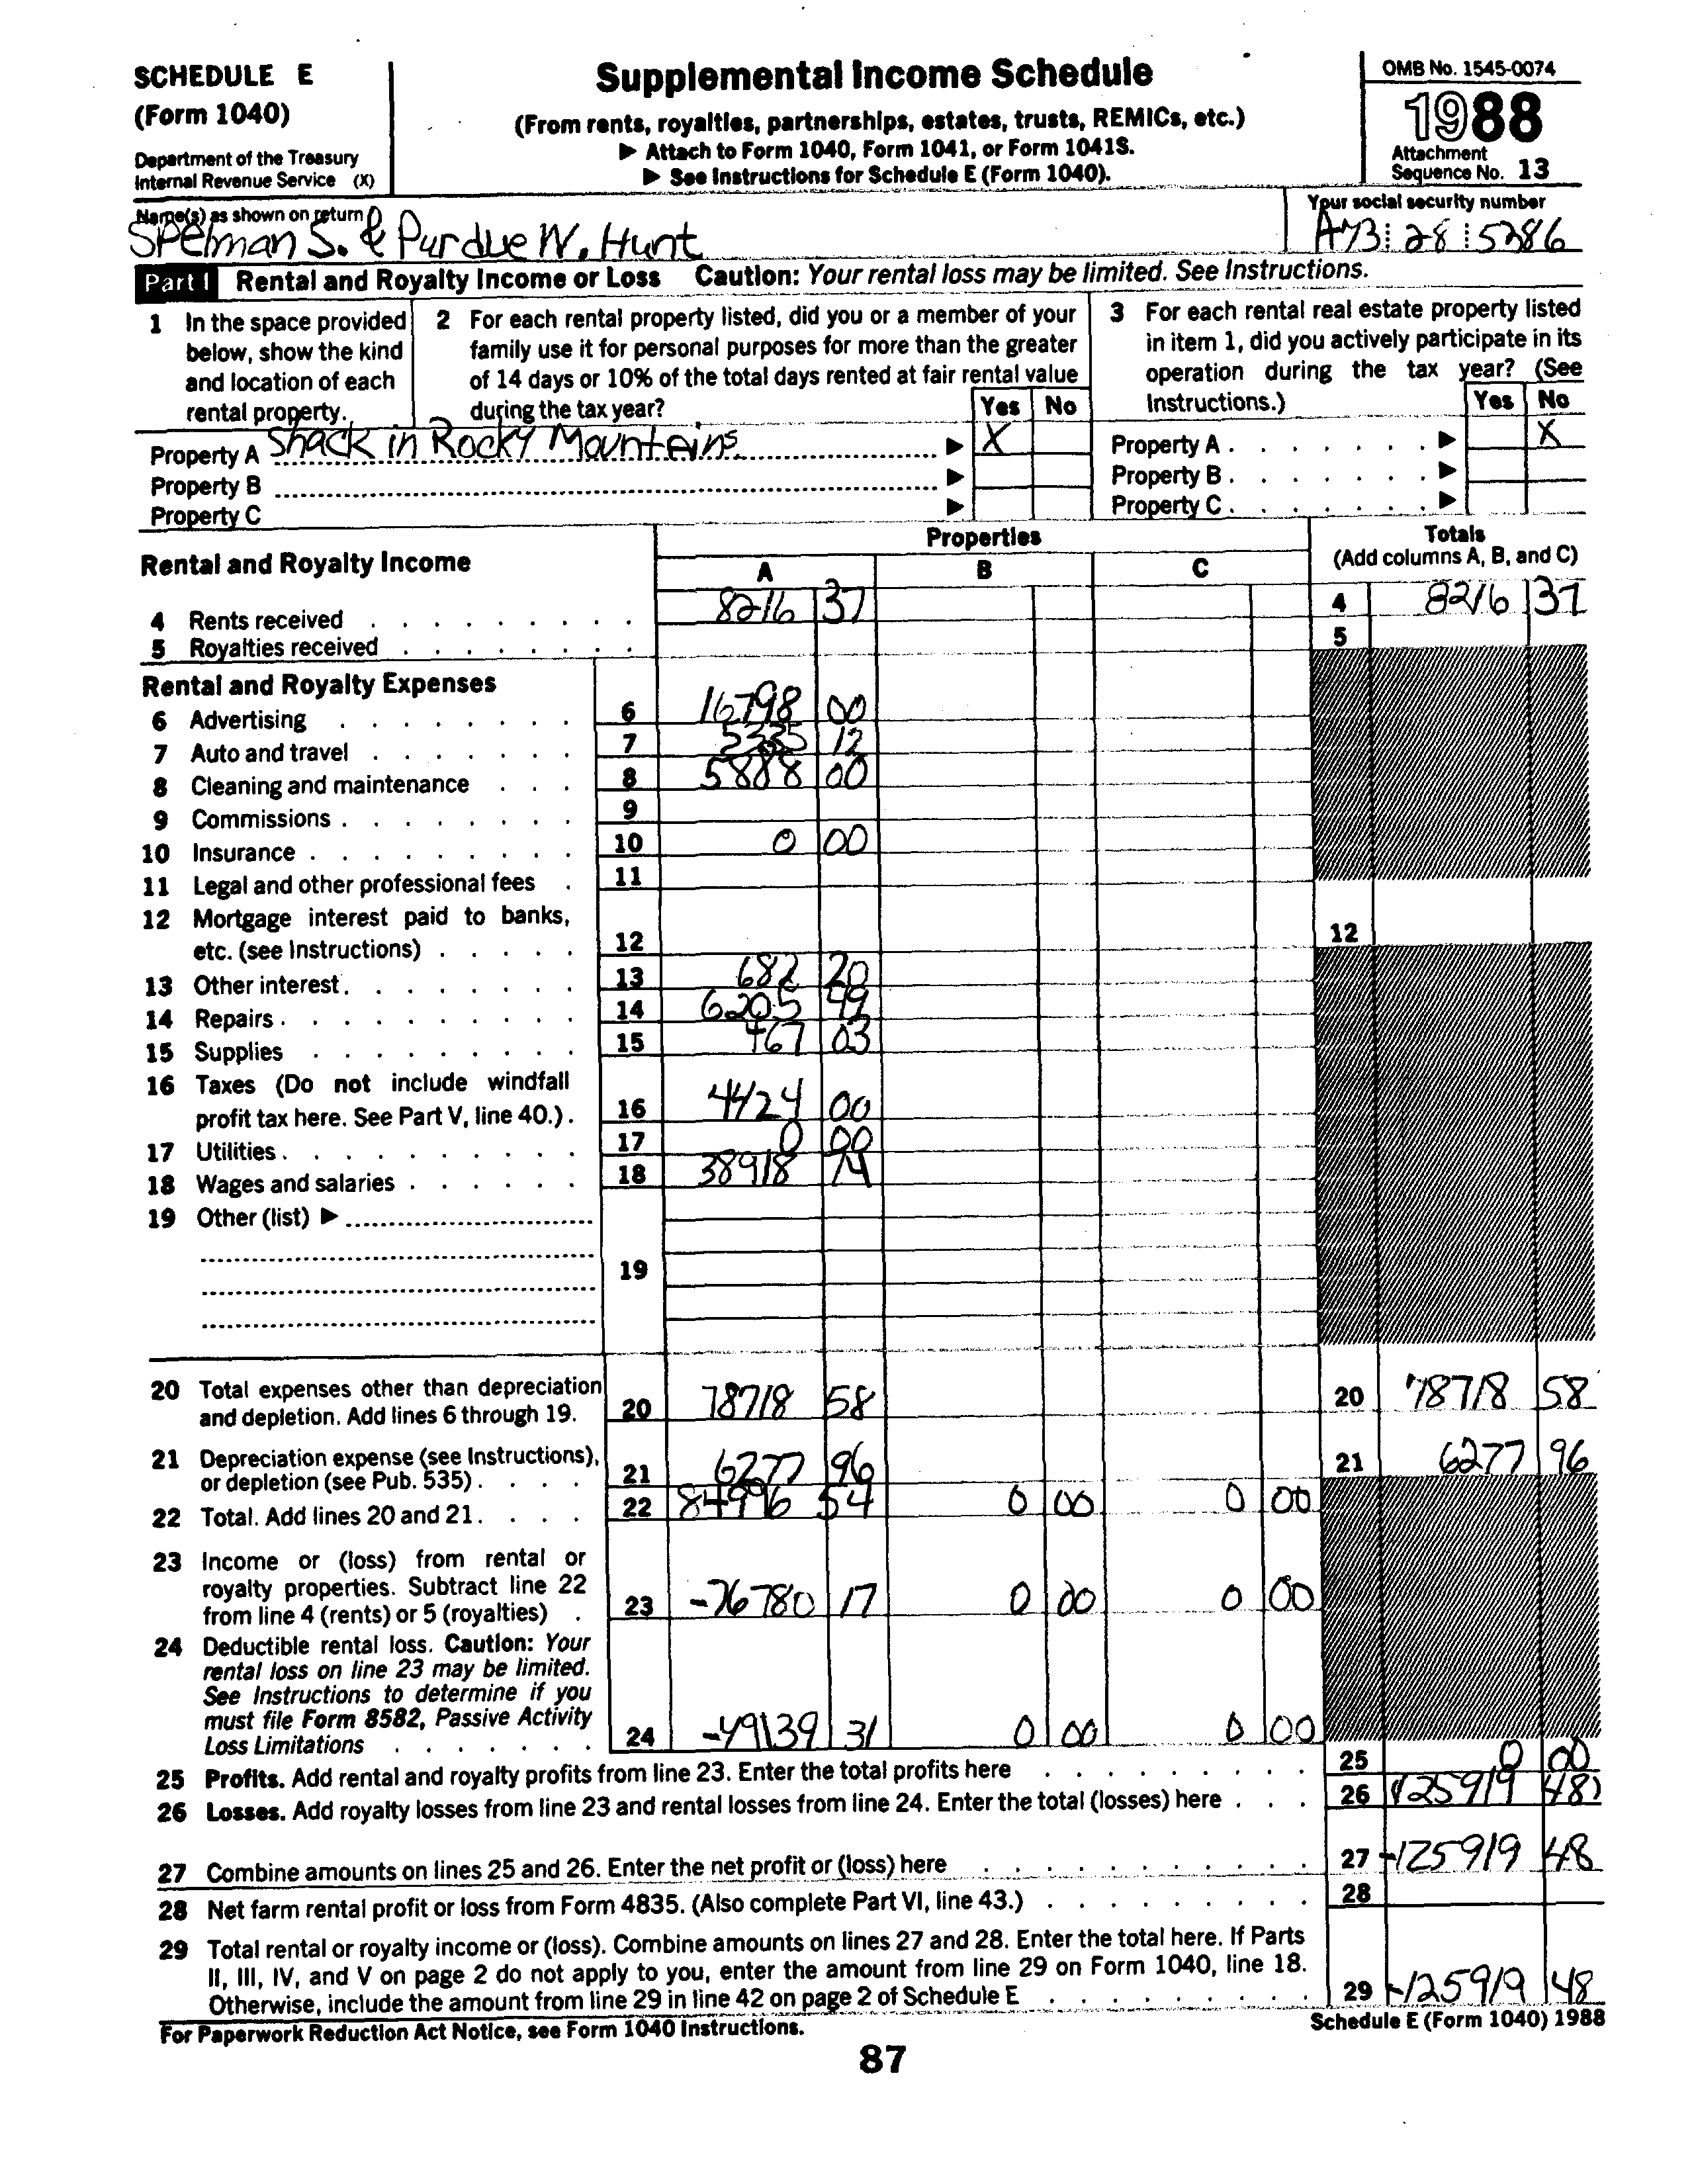 SCHEDULE E
(Form 1040)
Department of the Treasury
Internal Revenue Service (X)
Supplemental Income Schedule
(From rents, royalties, partnerships, estates, trusts, REMICs, etc.)
▶ Attach to Form 1040, Form 1041, or Form 1041S.
▶ See Instructions for Schedule E (Form 1040).
OMB No. 1545-0074
1988
Attachment
Sequence No. 13
Name(s) as shown on return
Spelman S. & Purdue W. Hunt
Your social security number
A73 28 5286
Part I Rental and Royalty Income or Loss Caution: Your rental loss may be limited. See Instructions.
1 In the space provided
below, show the kind
and location of each
rental property.
2 For each rental property listed, did you or a member of your
family use it for personal purposes for more than the greater
of 14 days or 10% of the total days rented at fair rental value
during the tax year?
Yes No
3 For each rental real estate property listed
in item 1, did you actively participate in its
operation during the tax year? (See
Instructions.)
Yes No
Property A Shack in Rocky Mountains ▶ X Property A ▶ X
Property B ▶ Property B ▶
Property C ▶ Property C ▶
Rental and Royalty Income
Properties
A B C
Totals
(Add columns A, B, and C)
4 Rents received 8216 37 4 8216 37
5 Royalties received 5
Rental and Royalty Expenses
6 Advertising 6 16798 00
7 Auto and travel 7 5335 12
8 Cleaning and maintenance 8 5888 00
9 Commissions 9
10 Insurance 10 0 00
11 Legal and other professional fees 11
12 Mortgage interest paid to banks,
etc. (see Instructions) 12 12
13 Other interest 13 682 20
14 Repairs 14 6205 49
15 Supplies 15 467 03
16 Taxes (Do not include windfall
profit tax here. See Part V, line 40.) 16 4424 00
17 Utilities 17 0 00
18 Wages and salaries 18 38918 74
19 Other (list) ▶
19
20 Total expenses other than depreciation
and depletion. Add lines 6 through 19. 20 78718 58 20 78718 58
21 Depreciation expense (see Instructions),
or depletion (see Pub. 535) 21 6277 96 21 6277 96
22 Total. Add lines 20 and 21 22 84996 54 0 00 0 00
23 Income or (loss) from rental or
royalty properties. Subtract line 22
from line 4 (rents) or 5 (royalties) 23 -76780 17 0 00 0 00
24 Deductible rental loss. Caution: Your
rental loss on line 23 may be limited.
See Instructions to determine if you
must file Form 8582, Passive Activity
Loss Limitations 24 -49139 31 0 00 0 00
25 Profits. Add rental and royalty profits from line 23. Enter the total profits here 25 0 00
26 Losses. Add royalty losses from line 23 and rental losses from line 24. Enter the total (losses) here 26 (125919 48)
27 Combine amounts on lines 25 and 26. Enter the net profit or (loss) here 27 -125919 48
28 Net farm rental profit or loss from Form 4835. (Also complete Part VI, line 43.) 28
29 Total rental or royalty income or (loss). Combine amounts on lines 27 and 28. Enter the total here. If Parts
II, III, IV, and V on page 2 do not apply to you, enter the amount from line 29 on Form 1040, line 18.
Otherwise, include the amount from line 29 in line 42 on page 2 of Schedule E 29 -125919 48
For Paperwork Reduction Act Notice, see Form 1040 Instructions.
Schedule E (Form 1040) 1988
87